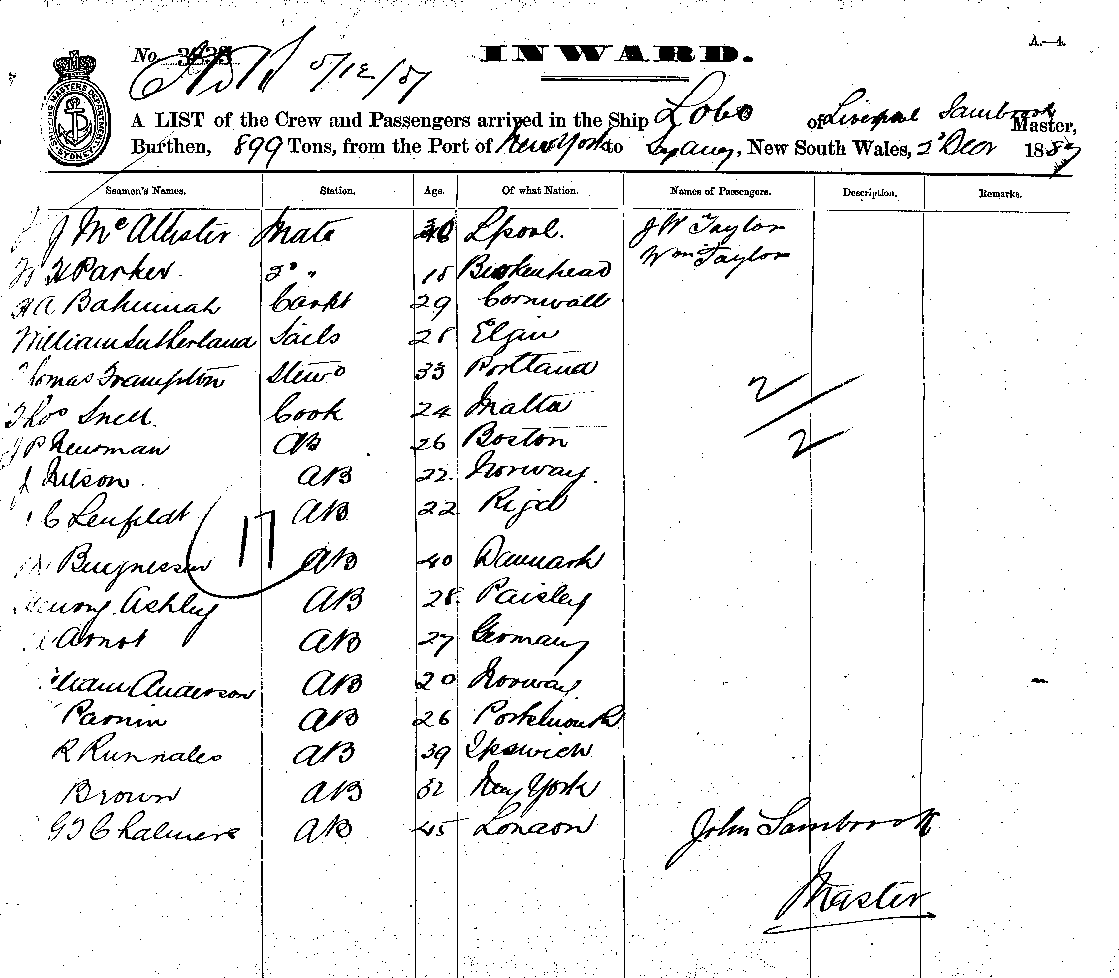 No 3838
INWARD.
A.—4.
5/12/87
SHIPPING MASTERS DEPARTMENT SYDNEY
A LIST of the Crew and Passengers arrived in the Ship Lobo of Liverpool Sambrook Master,
Burthen, 899 Tons, from the Port of New York to Sydney, New South Wales, 2d Decr 1887
Seamen's Names. Station. Age. Of what Nation. Names of Passengers. Description. Remarks.
J McAllister Mate Lpool. J W Taylor
Wm Taylor
W H Parker. 2d " 18 Birkenhead
H A Carpt 29 Cornwall
William Sutherland Sails 28 Elgin
Thomas Frampton Stewd 33 Portland
Thos Snell. Cook 24 Malta
J P Newman AB 26 Boston
J Nilson. AB 22 Norway.
C Lenfeldt AB 22 Riga
AB 40 Danmark
Henry Ashley AB 28 Paisley
Arnot AB 27 Germany
William Anderson AB 20 Norway
Parnin AB 26 Portsmouth
R Runnales AB 39 Ipswich
Brown AB New York
G T Chalmers AB 45 London
17
2/2
John Sambrook
Master